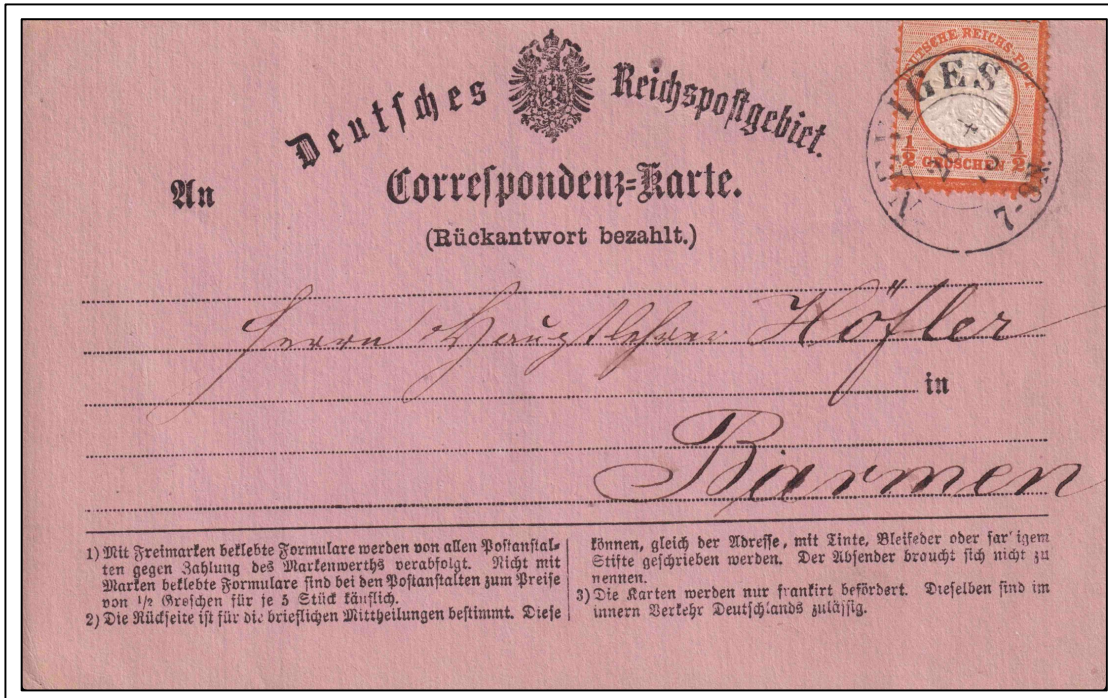 Deutsches Reichspostgebiet.
DEUTSCHE REICHS-POST
½ GROSCHEN ½
NEVIGES
7-8N.
An
Correspondenz=Karte.
(Rückantwort bezahlt.)
Herrn Hauptlehrer Höfler
in
Barmen
1) Mit Freimarken beklebte Formulare werden von allen Postanstal=
ten gegen Zahlung des Markenwerths verabfolgt. Nicht mit
Marken beklebte Formulare sind bei den Postanstalten zum Preise
von 1/2 Groschen für je 5 Stück käuflich.
2) Die Rückseite ist für die brieflichen Mittheilungen bestimmt. Diese
können, gleich der Adresse, mit Tinte, Bleifeder oder far igem
Stifte geschrieben werden. Der Absender braucht sich nicht zu
nennen.
3) Die Karten werden nur frankirt befördert. Dieselben sind im
innern Verkehr Deutschlands zulässig.